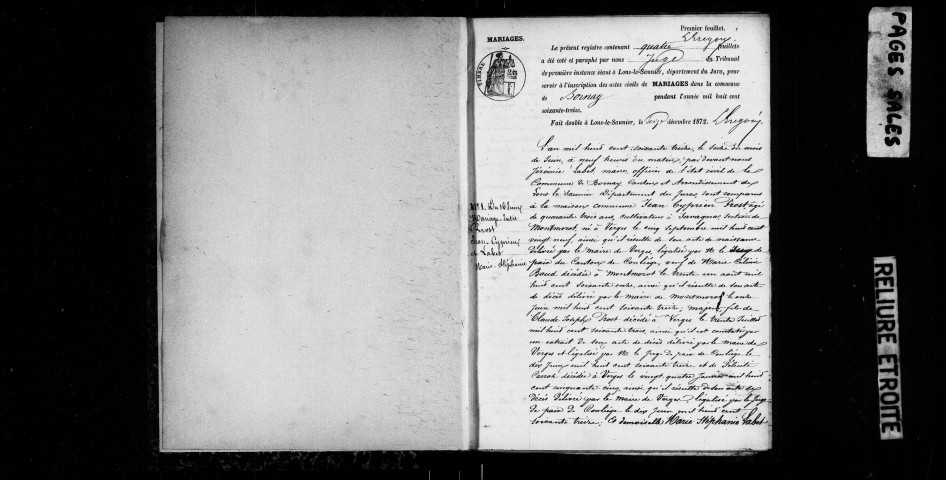 Premier feuillet.
MARIAGES.
Le présent registre contenant quatre feuillets
a été coté et paraphé par nous Juge du Tribunal
de première instance séant à Lons-le-Saunier, département du Jura, pour
servir à l'inscription des actes civils de MARIAGES dans la commune
de Bornay pendant l'année mil huit cent
soixante-treize.
Fait double à Lons-le-Saunier, le décembre 1872.
TIMBRE
L'an mil huit cent soixante treize, le seize du mois
de Juin, à neuf heures du matin, par devant nous
Jérémie Labet, maire, officier de l'état civil de la
Commune de Bornay Canton et Arrondissement de
Lons le Saunier Département du Jura, sont comparus
à la maison commune Jean Cyprien Prost âgé
de quarante trois ans, cultivateur à Savagna, section de
Montmorot, né à Verges le cinq septembre mil huit cent
vingt neuf, ainsi qu'il résulte de son acte de naissance
délivré par le maire de Verges, légalisé par M. le Juge de
paix du Canton de Conliège, veuf de Marie Céline
Baud décédée à Montmorot le trente un août mil
huit cent soixante onze, ainsi qu'il résulte de son acte
de décès délivré par le maire de Montmorot le onze
Juin mil huit cent soixante treize; majeur, fils de
Claude Joseph Prost décédé à Verges le trente Juillet
mil huit cent soixante trois, ainsi qu'il est constaté par
un extrait de son acte de décès délivré par le maire de
Verges et légalisé par M. le Juge de paix de Conliège le
dix Juin mil huit cent soixante treize et de
décédée à Verges le vingt quatre Janvier mil huit
cent cinquante cinq, ainsi qu'il résulte de son acte de
décès délivré par le maire de Verges, légalisé par le Juge
de paix de Conliège le dix Juin mil huit cent
soixante treize; Et demoiselle Marie Stéphanie Labet
N° 1. Du 16 Juin
Mariage entre
Prost
Jean Cyprien
et Labet
Marie Stéphanie
PAGES SALES
RELIURE ETROITE